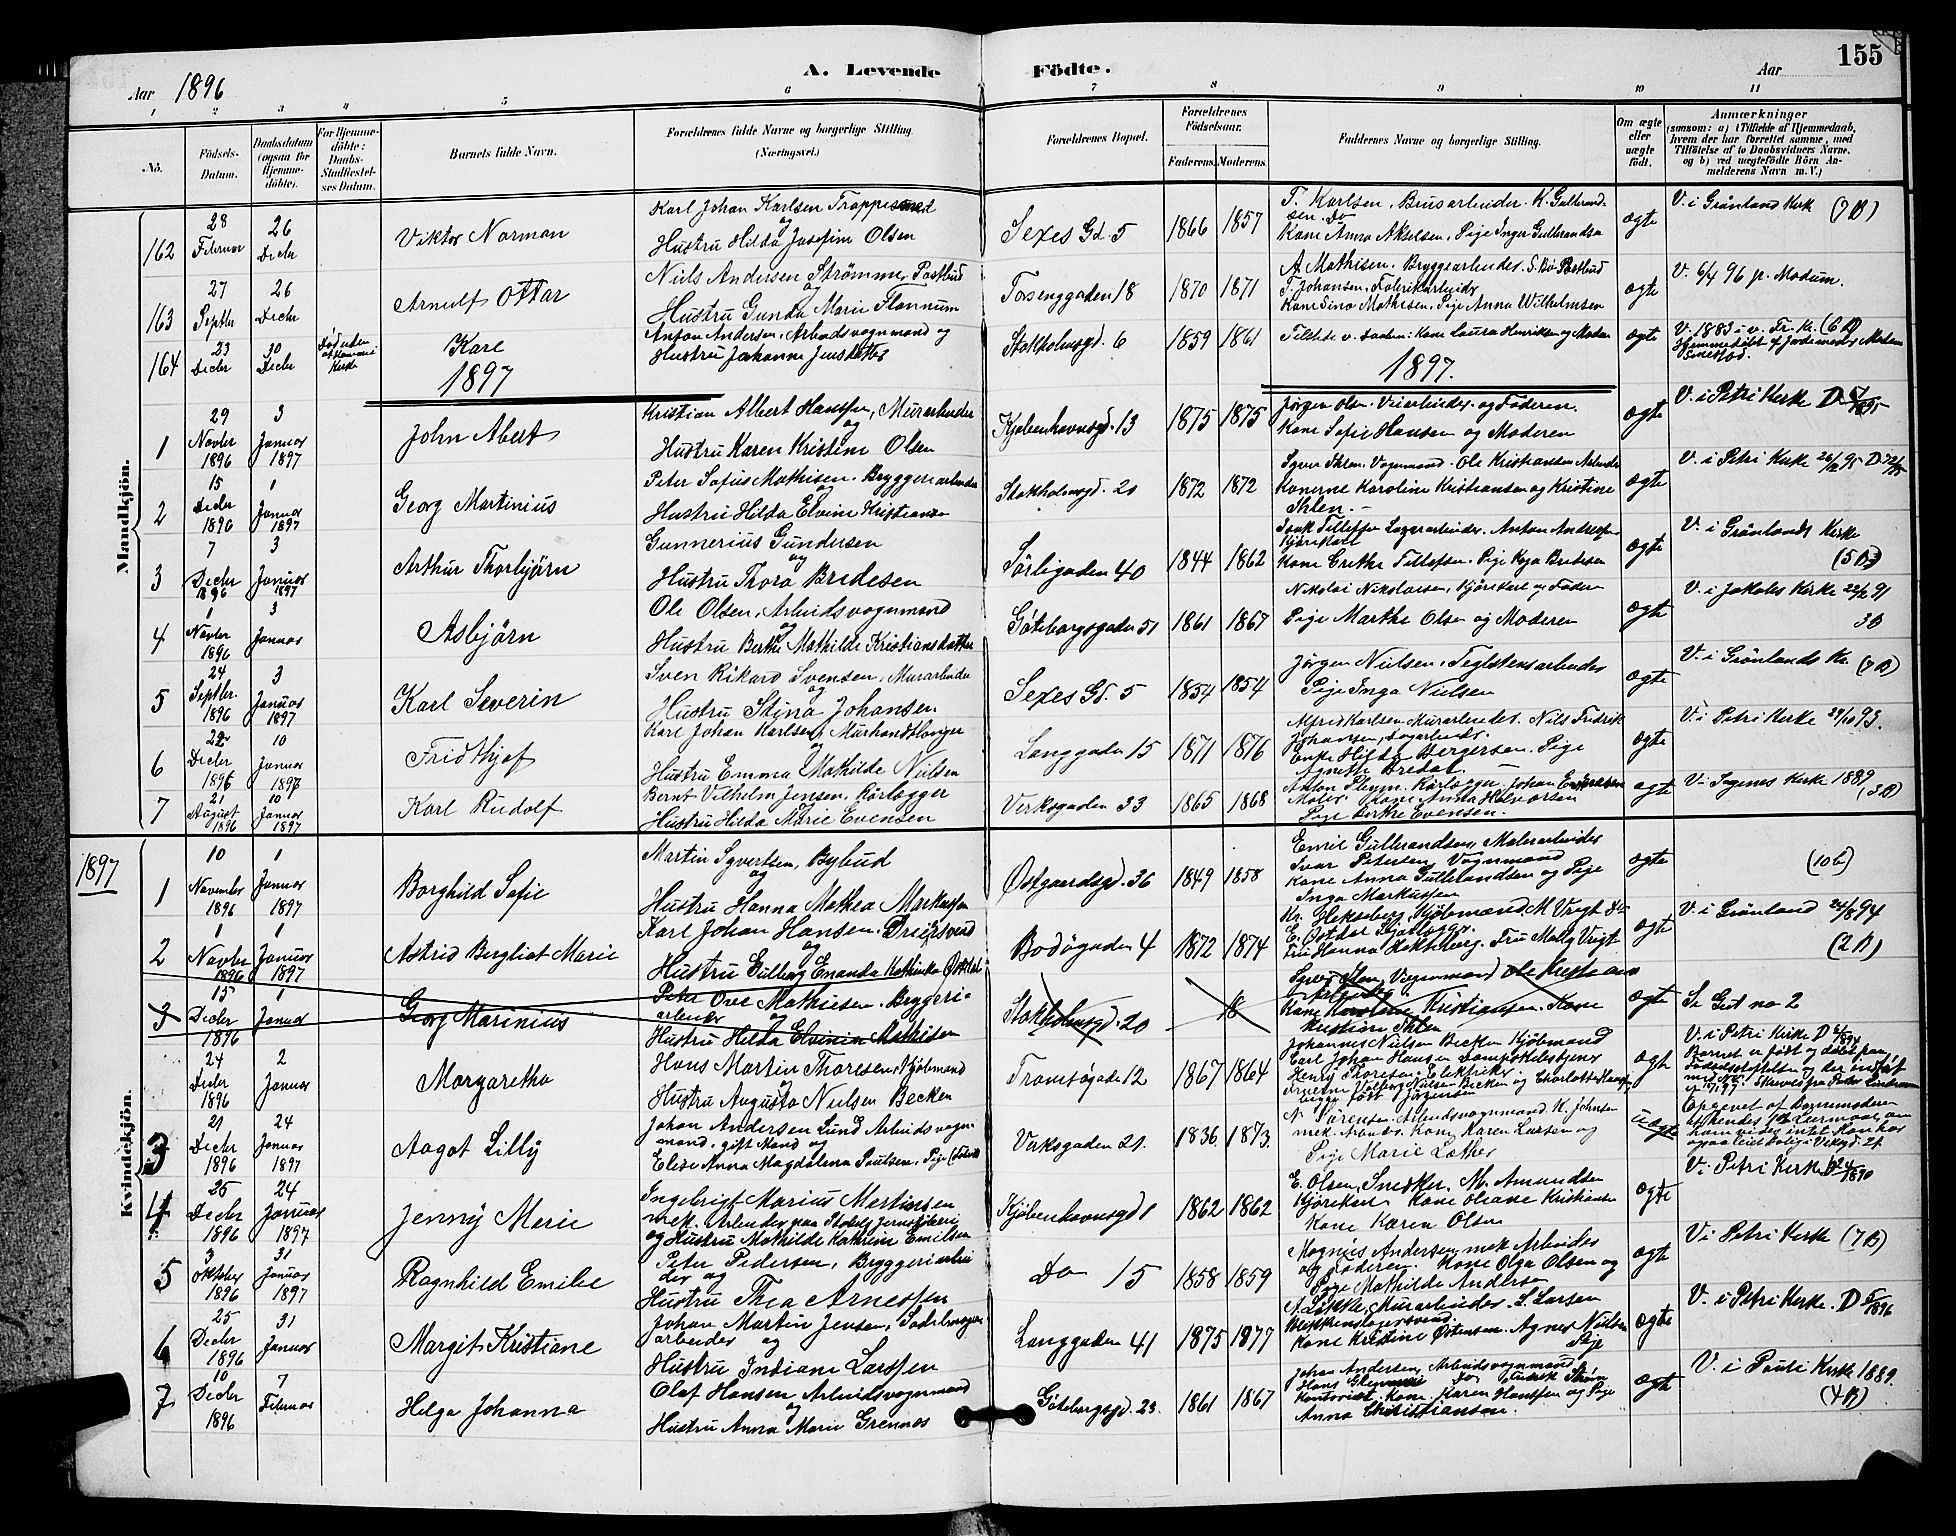 155
A. Levende Födte.
Aar 1896
Aar
1 2 3 4 5 6 7 8 9 10 11
No.
Födsels-Datum.
Daabsdatum (ogsaa for Hjemme-döbte).
For Hjemme-döbte: Daabs-Stadfæstel-ses Datum.
Barnets fulde Navn.
Forældrenes fulde Navne og borgerlige Stilling. (Næringsvei.)
Forældrenes Bopæl.
Forældrenes Födselsaar.
Faderens. Moderens.
Faddernes Navne og borgerlige Stilling.
Om ægte eller uægte födt.
Anmærkninger
(saasom: a) i Tilfælde af Hjemmedaab, hvem der har forrettet samme, med Tilföielse af to Daabsvidners Navne, og b) ved uegtefödte Börn An-melderens Navn m. V.)
Mandkjön.
162 28 Februar 26 Decbr Viktor Norman
Karl Johan Karlsen
og
Hustru Hilda Josefine Olsen
Sexes Gd. 5 1866 1857
T. Karlsen, Brusarbeider. K. Gulbrand-
sen. Do
Kone Anna Akselsen, Pige Inger Gulbrandsen
ægte V. i Grønland Kirk (7 B)
163 27 Septbr 26 Decbr Arnulf Ottar
Niels Andersen Strømme, Postbud
og
Hustru Gunda Marie Flannum
18 1870 1871
A. Mathisen. Bryggearbeider. S. Bø Postbud
T. Johansen, Fabrikarbeider
Kone Sina Mathisen, Pige Anna Wilhelmsen
ægte V. 6/4 96 p. Modum.
164 23 Decbr 30 Decbr Karl
Anton Andersen, Arbeidsvognmand og
Hustru Johanne Jensdatter
Stokholmsgd. 6 1859 1861
Kone Laura Henriksen og Moder
ægte V. 1883 i v. Fr. K. (6 B)
1897
1897.
1 29 Novbr 1896 3 Januar 1897 John Abert
Kristian Albert Hanssen, Murarbeider
og
Hustru Karen Kristine Olsen
Kjøbenhavnsgd. 13 1875 1875
Jørgen Olsen. og Faderen.
Kone Sofie Hansen og Moderen
ægte V. i Petri Kirke
2 15 Decbr 1896 1 Januar 1897 Georg Martinius
Peter Sofus Mathisen, Bryggeriarbeider
og
Hustru Hilda Elvine Kristiansen
Stokholmsgd. 20 1872 1872
Syver Ihlen, Vognmand. Ole Kristiansen Arbeider
Konerne Karoline Kristiansen og Kristine
Ihlen. -
ægte V. i Petri Kirke
3 7 Decbr 1896 3 Januar 1897 Arthur Thorbjörn
Gunnerius Gundersen
og
Hustru Thora Bredesen
Sörligaden 40 1844 1862
Isak Tillefsen Lagerarbeider, Anton Andressen
Kjörekarl
Kone Grethe Tillefsen, Pige Kaja Bredesen
ægte V. i Grønlands Kirke
(5 B)
4 1 Novbr 1896 3 Januar Asbjörn
Ole Olsen, Arbeidsvognmand
og
Hustru Berthe Mathilde Kristiansdatter
Göteborgsgaden 51 1861 1867
Nikolai Nikolaisen, Kjörekarl og Faderen
Pige Marthe Olsen og Moderen
ægte V. i Jakobs Kirke
3 B
5 24 Septbr. 1896 3 Januar 1897 Karl Severin
Sven Rikard Svensen, Murarbeider
og
Hustru Stina Johansen
Sexes Gd. 5 1854 1854
Jörgen Nielsen, Teglstensarbeider
Pige Inga Nielsen
ægte V. i Grønlands Kr. (7 B)
6 22 Decbr 1896 10 Januar 1897 Fridthjof
Karl Johan Karlsen, Murhandtlanger
og
Hustru Emma Mathilde Nielsen
Langgaden 15 1871 1876
Alfred Karlsen Murarbeider. Nils Fredrik
Johansen,
Enke Hilda Bergersen. Pige
Agnethe Bredal.
ægte V. i Petri Kirke 93.
7 21 August 1896 10 Januar 1897 Karl Rudolf
Bernt Vilhelm Jensen, Rörlægger
Hustru Hilda Marie Evensen
Verksgaden 33 1865 1868
Anton Rörlægger, Johan
Maler. Kone Anna Halvorsen
Pige Evensen.
ægte V. i Sagenes Kirke 1889
(3 B)
1897
Kvindekjön.
1 10 November 1896 1 Januar 1897 Borghild Sofie
Martin Syvertsen, Bybud
og
Hustru Hanna Mathea Markussen
Østgaardsgd. 36 1849 1858
Emil Gulbrandsen, Malerarbeider
Ivar Petersen, Vognmand
Kone Anna Gulbrandsen og Pige
Inga Markussen
ægte (10 B)
2 1 Novbr 1896 1 Januar 1897 Astrid Bergliot Marie
Karl Johan Hansen. Dreiersvend
og
Hustru Amanda Kathinka Østdal
Bodögaden 4 1872 1874
ægte V. i Grønland 24/8 94
(2 B)
3 15 Decbr 1896 1 Januar Georg Marinius
Peter Ove Mathiesen. Bryggeri-
arbeider og
Hustru Hilda Elvinia Mathisen
Stokholmsgd. 20 18
ægte Se Gut no 2
24 Decbr 1896 2 Januar Margaretha
Hans Martin Thoresen, Kjöbmand
og
Hustru Augusta Nielsen Becken
Tromsøgade 12 1867 1864
Johannes Nielsen Becken Kjöbmand
Carl Johan Hansen
Henry Thoresen. Elektriker
ægt V. i Petri Kirke
Barnet er født og døbt paa
Fødselsstiftelsen og der indført
3 21 Decbr 1896 24 Januar 1897 Aagot Lilly
Johan Andersen Lund Arbeidsvogn-
mand, gift Mand og
Elise Anna Magdalena Poulsen, Pige
Verksgaden 21. 1836. 1873.
Arbeidsvognmand K. Johnsen
mek. Arbeider. Kone Karen Larsen og
Pige Marie Lother
uægte Opgivet af Barnemoderen
4 25 Decbr 1896 24 Januar 1897 Jenny Marie
Ingebrigt Marius Martinsen
mek. Arbeider
og Hustru Mathilde Kathrine Emilsen
Kjöbenhavnsgd 1 1862 1862
E. Olsen, Snedker. M. Amundsen
Kjörekarl. Kone Oleane Kristiansen
Kone Karen Olsen
ægte V. i Petri Kirke
5 3 Oktober 1896 31 Januar 1897 Ragnhild Emilie
Peter Pedersen, Bryggeriarbei-
der og
Hustru Thea Arnessen
Do 15 1858 1859
Magnus Andersen mek Arbeider
og Faderen. Kone Olga Olsen og
Pige Mathilde Andersen
ægte V. i Petri Kirke (7 B)
6 25 Decbr 1896 31 Januar Margit Kristiane
Johan Martin Jensen,
arbeider og
Hustru Indiane Larssen
Langgaden 41 1875 1877
A. Løkke, Murarbeider. L. Larsen
Blikkenslagersvend.
Kone Kristine Østensen. Agnes Nielsen
Pige
ægte V. i Petri Kirke. D 5/1896
7 10 Decbr 1896 7 Februar Helga Johanna
Olaf Hansen Arbeidsvognmand
og
Hustru Anna Marie Grennes
Göteborgsgd. 23. 1861 1867
Johan Andersen, Arbeidsvognmand,
Kone Karen Hanssen og Pige
Anna Christiansen.
ægte V. i Pauli Kirke 1889.
(4 B)